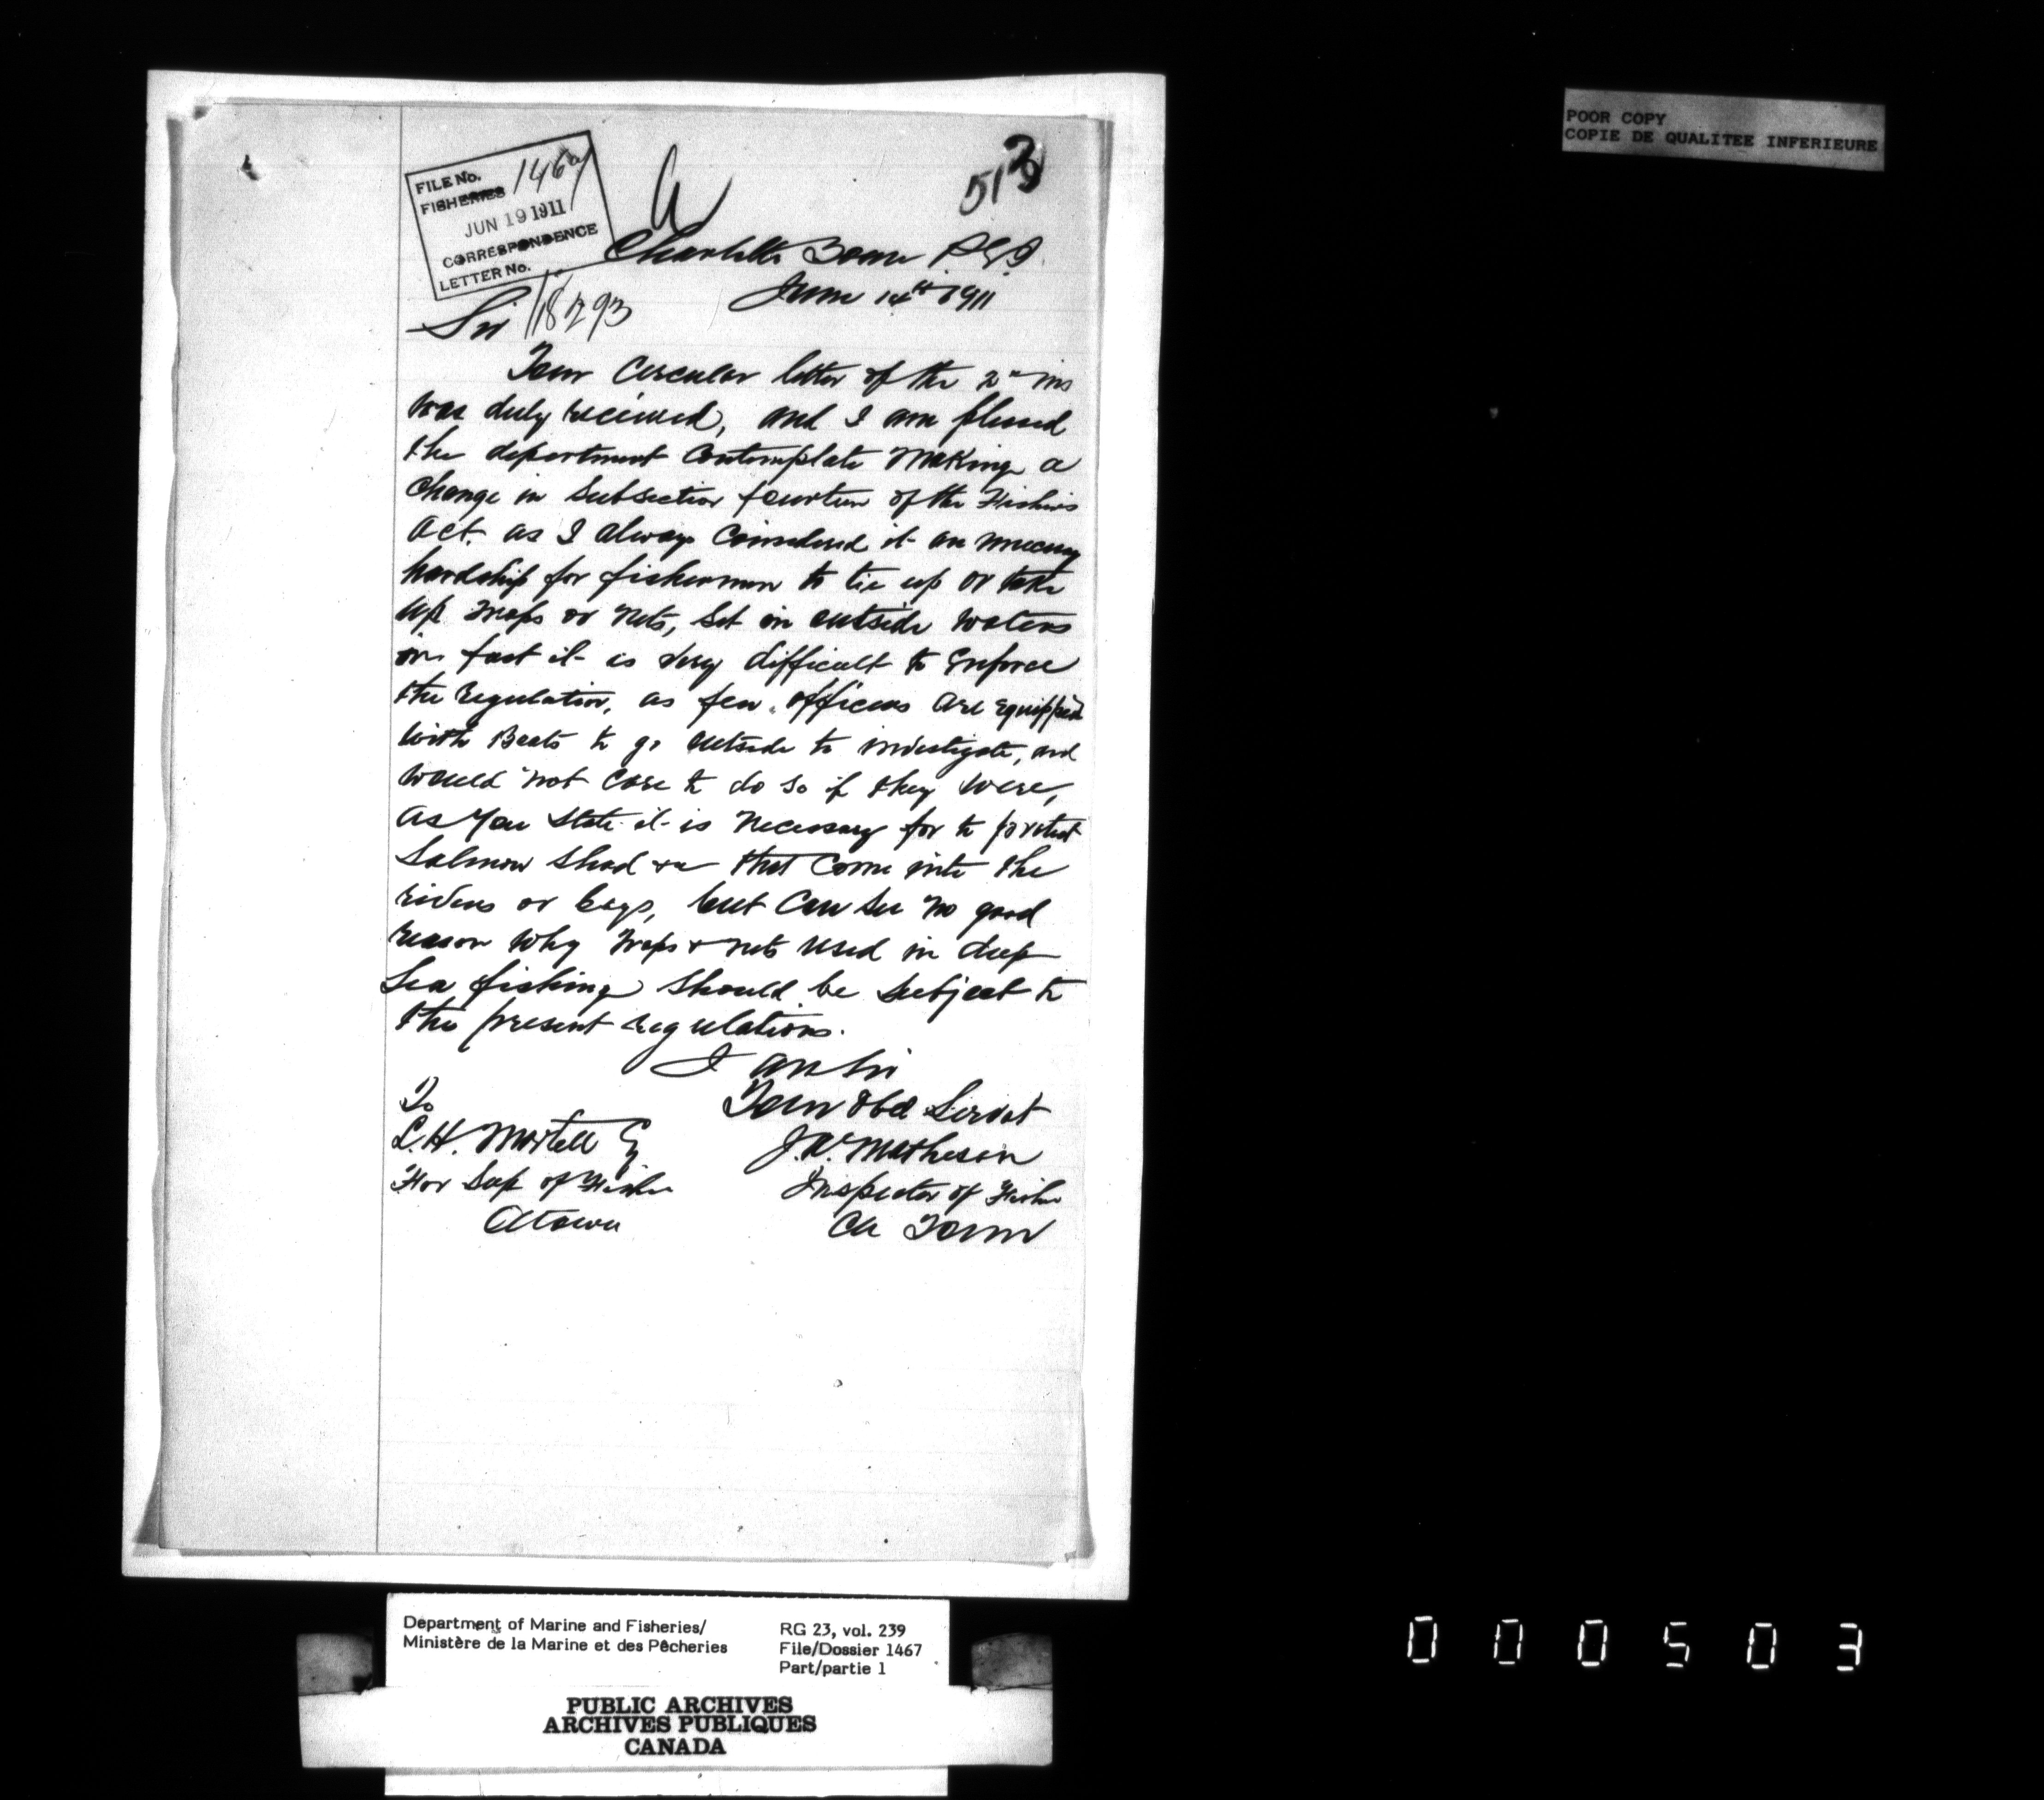 POOR COPY
COPIE DE QUALITEE INFERIEURE
FILE No. 1467
FISHERIES
JUN 19 1911
CORRESPONDENCE
LETTER No.
18293
513
Charlotte Town P.E.I.
June 14th 1911
Sir
Your Circular letter of the 2" ins
was duly received, and I am plesed
the department Contemplate Making a
Change in Subsection fourteen of the Fisheris
Act. as I always Considered it an unnecessary
hardship for fishermen to tie up or take
up traps or nets, set in outside waters
in fact it is very difficult to Enforce
the regulation, as few officers are equipped
with Boats to go outside to investigate, and
would not care to do so if they were,
as you state it is necessary for to protect
Salmon Shad &c that Come into the
rivers or bays, but Can see no good
reason why traps & nets used in deep
Sea fishing should be subject to
the present regulations.
I am Sir
Your Obd Servat
J.A. Matheson
Inspector of Fishe
Ch Town
To
L.H. Martell Eq
For Sup of Fishe
Ottawa
Department of Marine and Fisheries/
Ministère de la Marine et des Pêcheries
RG 23, vol. 239
File/Dossier 1467
Part/partie 1
PUBLIC ARCHIVES
ARCHIVES PUBLIQUES
CANADA
000503